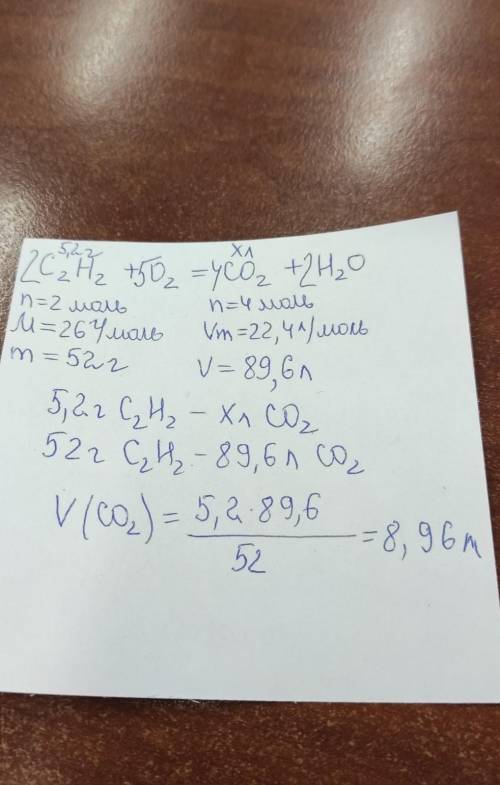 5,2г xл
2C₂H₂ + 5O₂ = 4CO₂ + 2H₂O
n=2 моль n=4 моль
M=26 г/моль Vm=22,4 л/моль
m=52г V=89,6л
5,2г C₂H₂ - xл CO₂
52г C₂H₂ - 89,6л CO₂
V(CO₂) = 5,2·89,6 / 52 = 8,96л